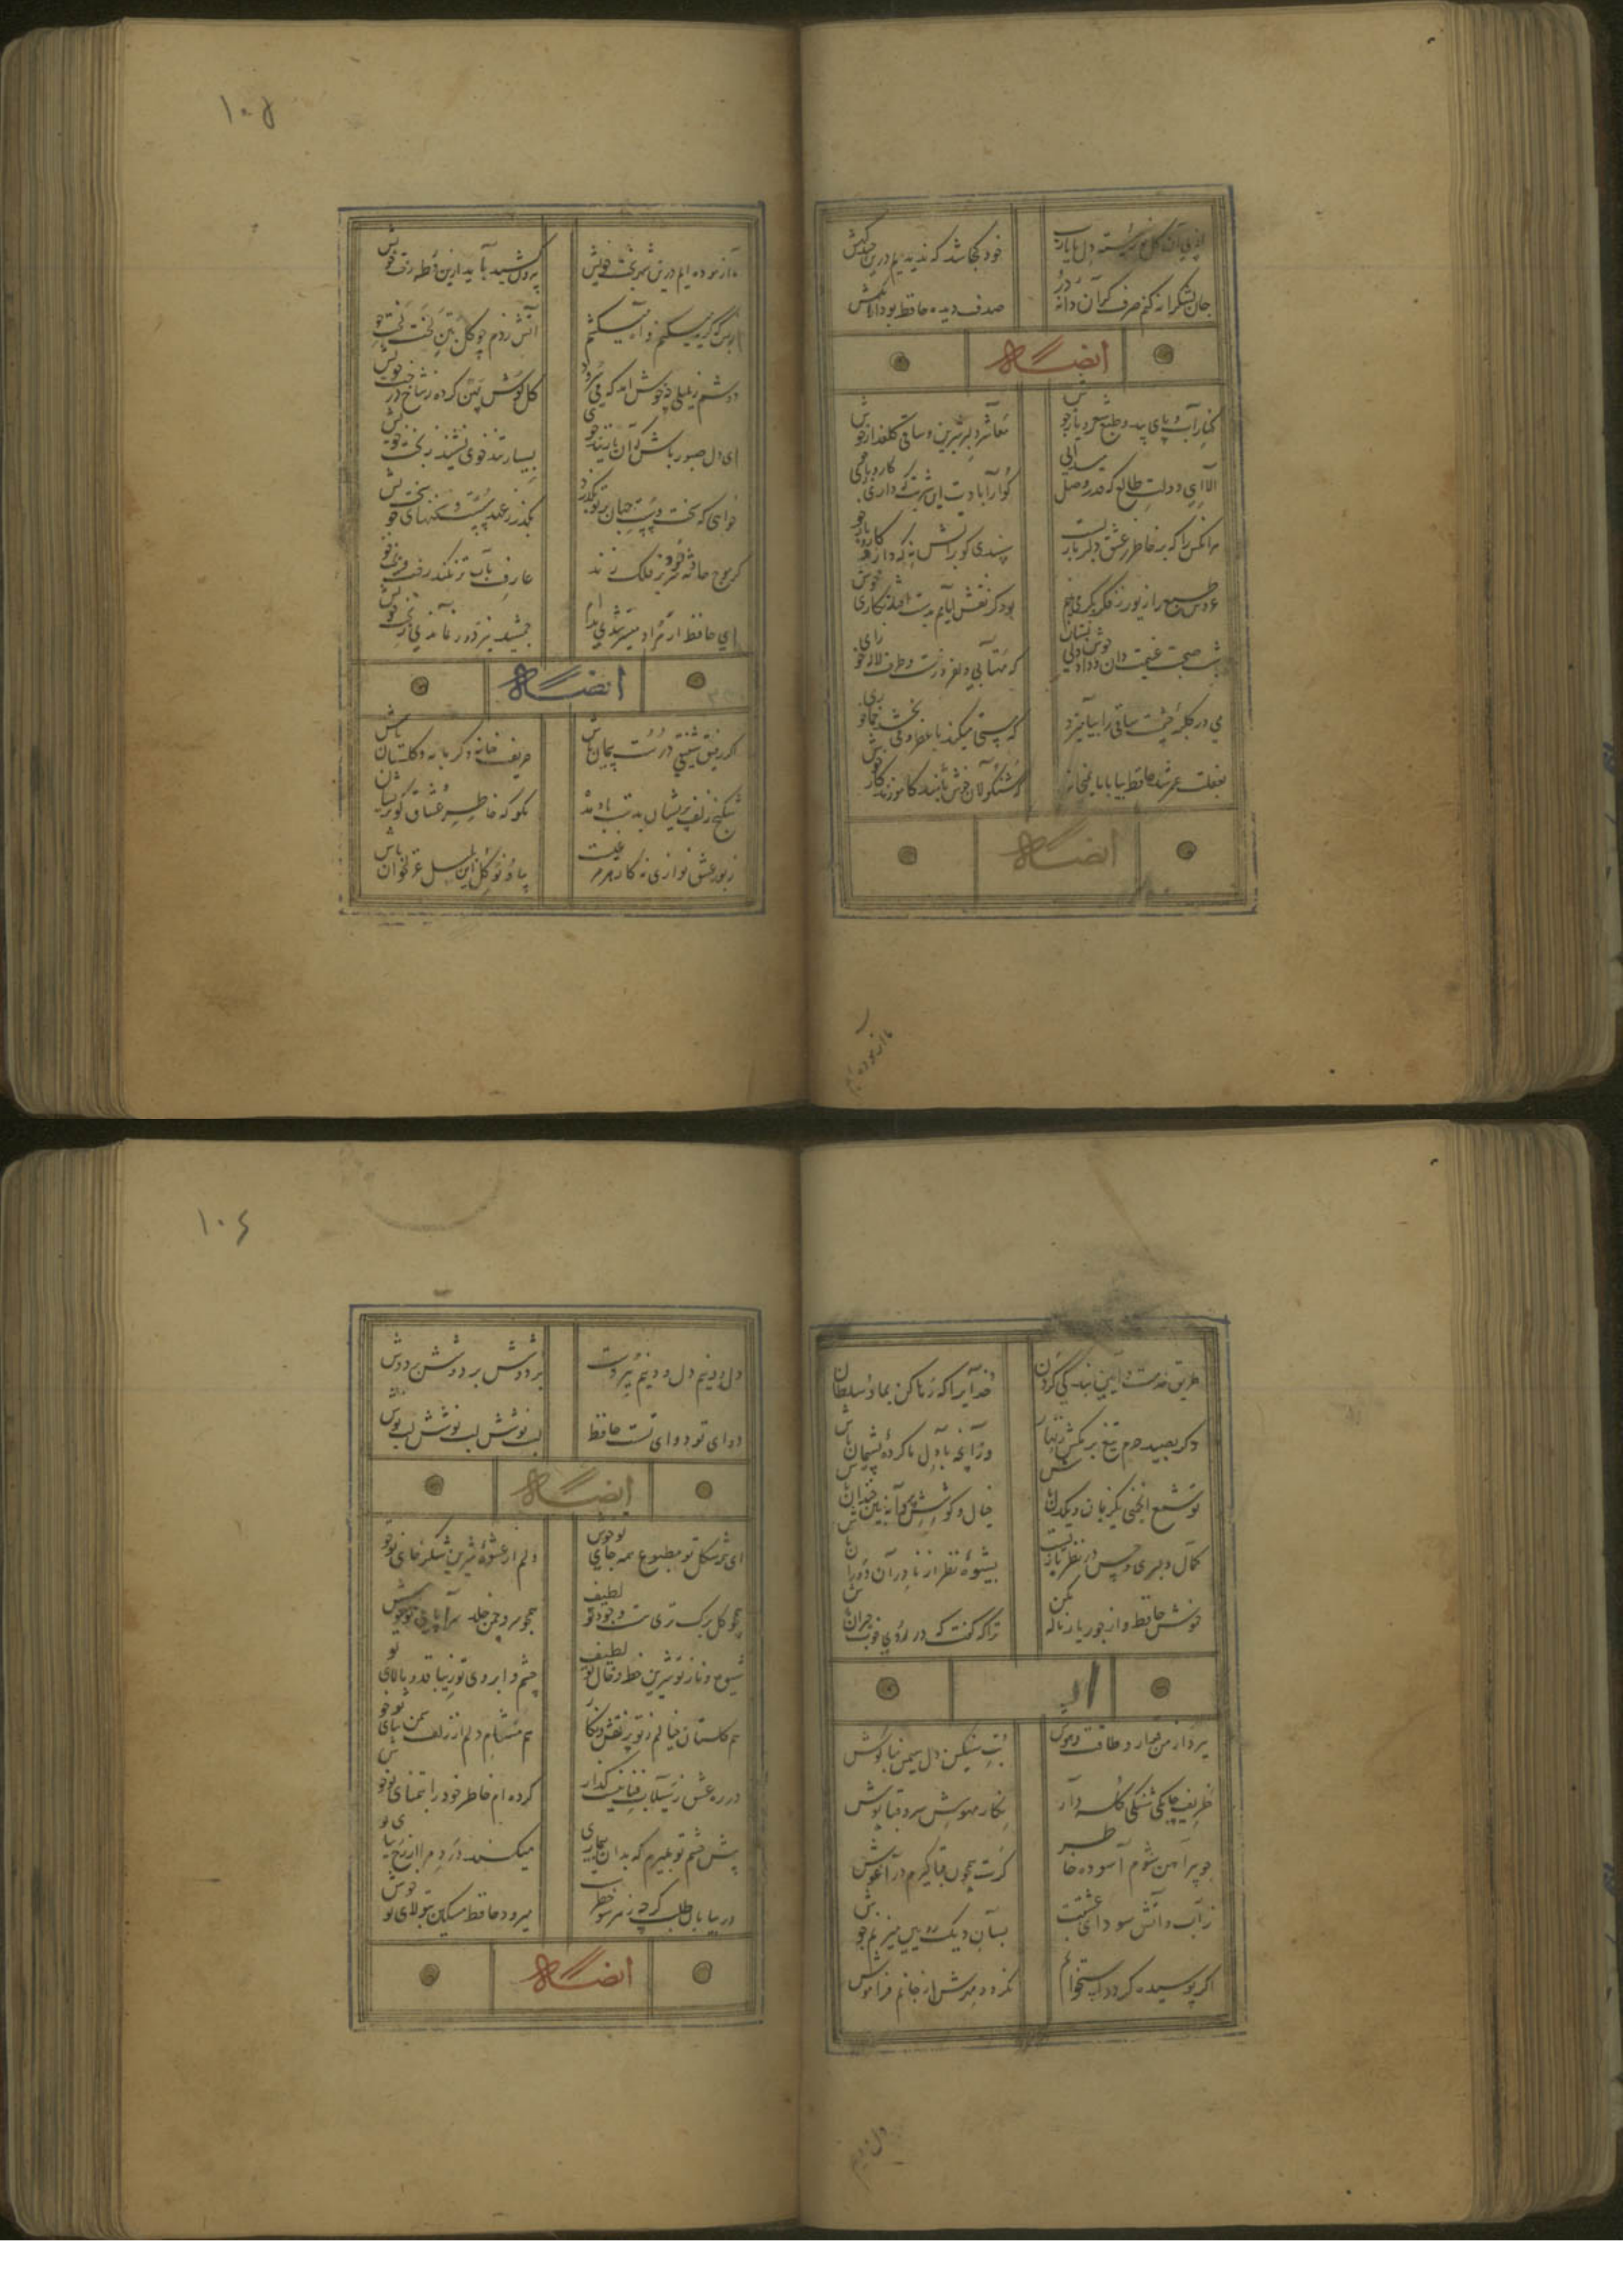 از پی آن گل نورسته دل ما یارب خود کجا شد که ندیدیم درین چند گهش
جان بشکرانه کنم صرف گر آن دانه در صدف دیده حافظ بود آرامگهش
ایضاً له
کنار آب و پای بید و طبع شعر و یاری خوش معاشر دلبر شیرین و ساقی گلعذاری خوش
الا ای دولت طالع که قدر وصل میدانی گوارا بادت این عشرت که داری روزگاری خوش
هر آنکس را که بر خاطر ز عشق دلبر باریست سپندی گو بر آتش نه که دارد کاروباری خوش
عروس طبع را زیور ز فکر بکر می‌بندم بود کز نقش ایامم بدست افتد نگاری خوش
شب صحبت غنیمت دان و داد خوش‌دلی بستان که مهتابی دلفروزست و طرف لاله‌زاری خوش
می در کاسه چشمست ساقی را بنامیزد که مستی میکند با عقل و می‌بخشد خماری خوش
بغفلت عمر شد حافظ بیا با ما بمیخانه که شنگولان خوش باشت بیاموزند کاری خوش
ایضاً له
ما آزموده ایم
۱۰۵
ما آزموده ایم درین شهر بخت خویش بیرون کشید باید ازین ورطه رخت خویش
از بس که گریه میکنم و آه میکشم آتش زدم چو گل بتن لخت لخت خویش
دوشم ز بلبلی چه خوش آمد که می‌سرود گل گوش پهن کرده ز شاخ درخت خویش
ای دل صبور باش که آن یار تندخوی بسیار تندخوی نشیند ز بخت خویش
خواهی که سخت و سست جهان بر تو بگذرد بگذر ز عهد سست و سخنهای سخت خویش
گر موج حادثه سر بر فلک زند عارف بآب تر نکند رخت و پخت خویش
ای حافظ ار مراد میسر شدی مدام جمشید نیز دور نماندی ز تخت خویش
ایضاً له
اگر رفیق شفیقی درست پیمان باش حریف خانه و گرمابه و گلستان باش
شکنج زلف پریشان بدست باد مده مگو که خاطر عشاق گو پریشان باش
زبور عشق نوازی نه کار هر مرغیست بیا و نوگل این بلبل غزلخوان باش
طریق خدمت و آیین بندگی کردن خدایرا که رها کن بما و سلطان باش
دگر بصید حرم تیغ برمکش زنهار وز آنچه با دل ما کرده پشیمان باش
تو شمع انجمنی یکزبان و یکدل باش خیال و کوشش پروانه بین و خندان باش
کمال دلبری و حسن در نظربازیست بشیوه نظر از نادران دوران باش
خموش حافظ و از جور یار ناله مکن ترا که گفت که در روی خوب حیران باش
ببرد از من قرار و طاقت و هوش بت سنگین دل سیمین بناگوش
ظریفی چابکی شنگی کله دار نگار مهوش سرو قباپوش
چو پیراهن شوم آسوده خاطر گرت همچون قبا گیرم در آغوش
ز تاب آتش سودای عشقت بسان دیگ رویین میزنم جوش
اگر پوسیده گردد استخوانم نگردد مهرش از جانم فراموش
دل و دینم
۱۰۶
دل و دینم دل و دینم ببردست بر دوشش بر دوشش بر دوش
دوای تو دوای تست حافظ لب نوشش لب نوشش لب نوش
ایضاً له
ای همه شکل تو مطبوع و همه جای تو خوش دلم از عشوه شیرین شکرخای تو خوش
همچو گلبرگ تری هست وجود تو لطیف همچو سرو چمن خلد سراپای تو خوش
شیوه و ناز تو شیرین خط و خال تو لطیف چشم و ابروی تو زیبا قد و بالای تو خوش
هم گلستان خیالم ز تو پر نقش و نگار هم مشام دلم از زلف سمن سای تو خوش
در ره عشق ز سیلاب فنا نیست گذار کرده ام خاطر خود را بتمنای تو خوش
پیش چشم تو بمیرم که بدان بیماری میکند درد مرا از رخ زیبای تو خوش
در بیابان طلب گر چه ز هر سو خطریست میرود حافظ مسکین بتولای تو خوش
ایضاً له